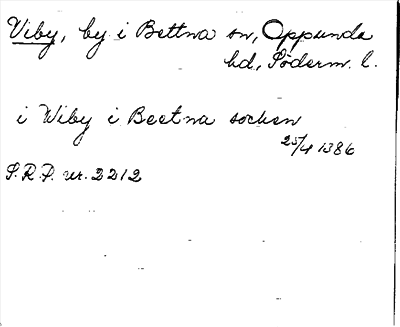 Viby, by i Bettna sn, Oppunda
hd, Söderm. l.
i Wiby i Beetna socken
25/4 1386
S.R.P. nr. 2212